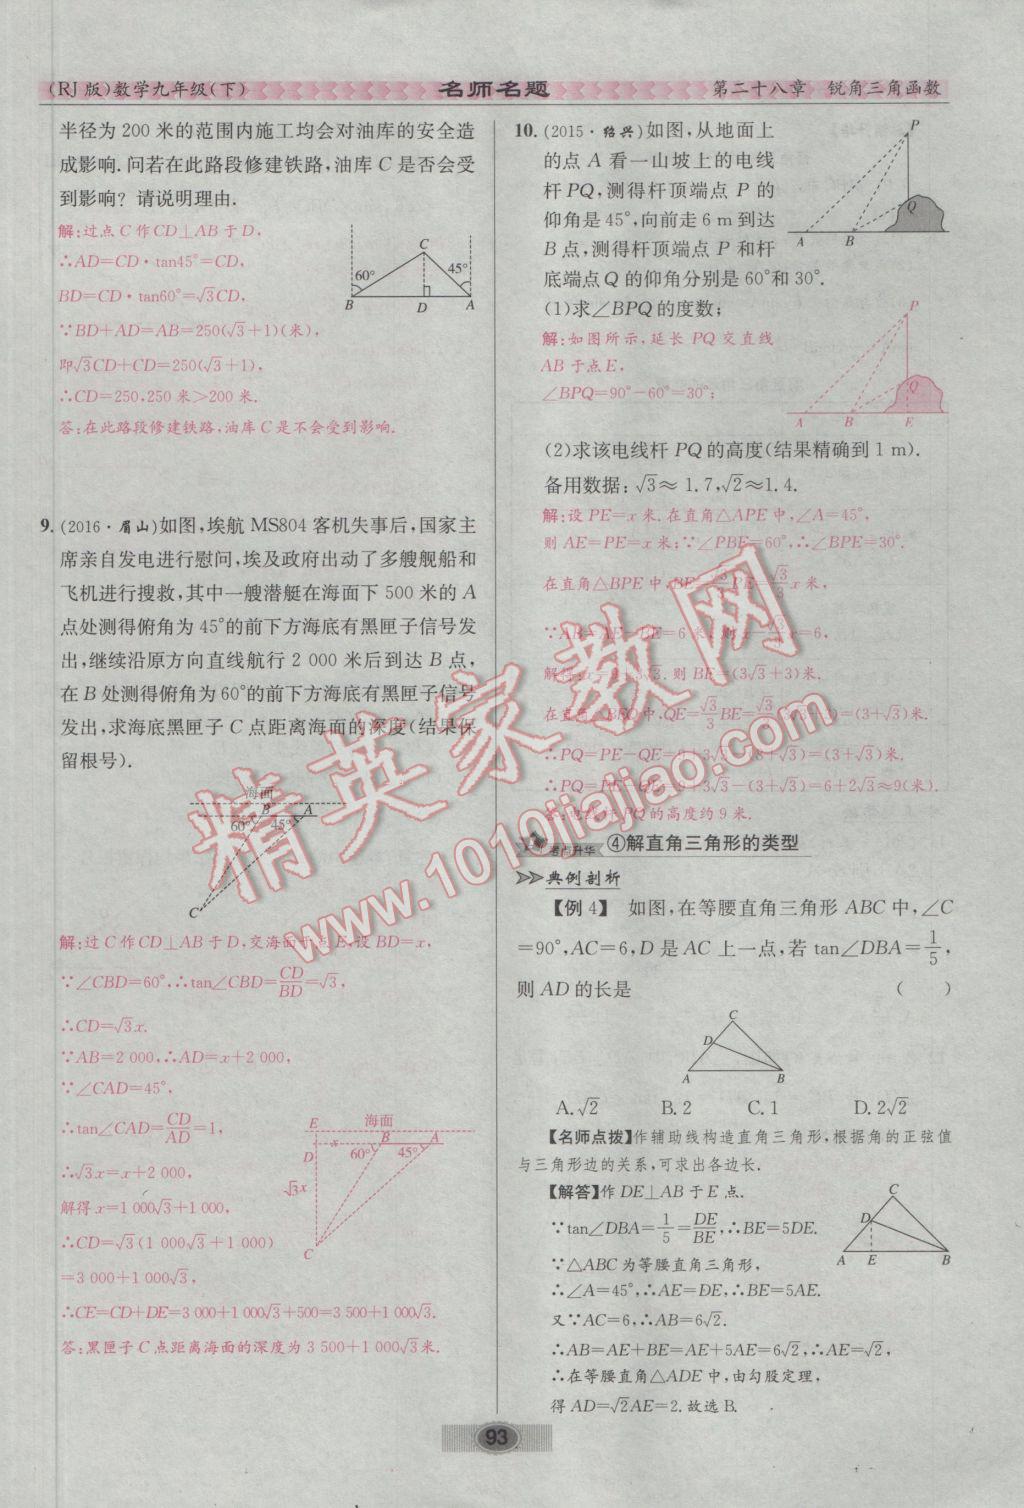 (RJ版)数学九年级(下)
名师名题
第二十八章 锐角三角函数
半径为 200 米的范围内施工均会对油库的安全造
成影响.问若在此路段修建铁路,油库 C 是否会受
到影响? 请说明理由.
解:过点 C 作 CD⊥AB 于 D,
∴AD=CD·tan45°=CD,
BD=CD·tan60°=√3CD,
∵BD+AD=AB=250(√3+1)(米),
即√3CD+CD=250(√3+1),
∴CD=250,250 米>200 米.
答:在此路段修建铁路,油库 C 是不会受到影响.
C
60°
45°
B
D
A
9.(2016·眉山)如图,埃航 MS804 客机失事后,国家主
席亲自发电进行慰问,埃及政府出动了多艘舰船和
飞机进行搜救,其中一艘潜艇在海面下 500 米的 A
点处测得俯角为 45°的前下方海底有黑匣子信号发
出,继续沿原方向直线航行 2 000 米后到达 B 点,
在 B 处测得俯角为 60°的前下方海底有黑匣子信号
发出,求海底黑匣子 C 点距离海面的深度(结果保
留根号).
海面
B
A
60°
45°
C
解:过 C 作 CD⊥AB 于 D,交海面于点 E,设 BD=x,
∵∠CBD=60°,∴tan∠CBD=CD/BD=√3,
∴CD=√3x.
∵AB=2 000,∴AD=x+2 000,
∵∠CAD=45°,
∴tan∠CAD=CD/AD=1,
∴√3x=x+2 000,
解得 x=1 000√3+1 000,
∴CD=√3(1 000√3+1 000)
=3 000+1 000√3,
∴CE=CD+DE=3 000+1 000√3+500=3 500+1 000√3.
答:黑匣子 C 点距离海面的深度为 3 500+1 000√3米.
E
海面
x
B
A
D
60°
45°
√3x
C
10.(2015·绍兴)如图,从地面上
的点 A 看一山坡上的电线
杆 PQ,测得杆顶端点 P 的
仰角是 45°,向前走 6 m 到达
B 点,测得杆顶端点 P 和杆
底端点 Q 的仰角分别是 60°和 30°.
(1)求∠BPQ 的度数;
P
Q
A
B
解:如图所示,延长 PQ 交直线
AB 于点 E,
∠BPQ=90°-60°=30°;
P
Q
A
B
E
(2)求该电线杆 PQ 的高度(结果精确到 1 m).
备用数据:√3≈1.7,√2≈1.4.
解:设 PE=x 米.在直角△APE 中,∠A=45°,
则 AE=PE=x 米;∵∠PBE=60°,∴∠BPE=30°.
在直角△BPE 中,BE=√3/3PE=√3/3x 米,
∵AB=AE-BE=6 米,则 x-√3/3x=6,
解得:x=9+3√3.则 BE=(3√3+3)米.
在直角△BEQ 中,QE=√3/3BE=√3/3(3√3+3)=(3+√3)米.
∴PQ=PE-QE=9+3√3-(3+√3)=(3+√3)米.
∴PQ=PE-QE=9+3√3-(3+√3)=6+2√3≈9(米).
答:电线杆 PQ 的高度约 9 米.
考点升华 ④解直角三角形的类型
典例剖析
【例 4】 如图,在等腰直角三角形 ABC 中,∠C
=90°,AC=6,D 是 AC 上一点,若 tan∠DBA=1/5,
则 AD 的长是 ( )
C
D
A
B
A.√2 B.2 C.1 D.2√2
【名师点拨】作辅助线构造直角三角形,根据角的正弦值
与三角形边的关系,可求出各边长.
【解答】作 DE⊥AB 于 E 点.
∵tan∠DBA=1/5=DE/BE,∴BE=5DE.
∵△ABC 为等腰直角三角形,
∴∠A=45°,∴AE=DE,∴BE=5AE.
又∵AC=6,∴AB=6√2.
∴AB=AE+BE=AE+5AE=6√2,∴AE=√2,
∴在等腰直角△ADE 中,由勾股定理,
得 AD=√2AE=2.故选 B.
C
D
A
E
B
精英家教网
www.1010jiajiao.com
93